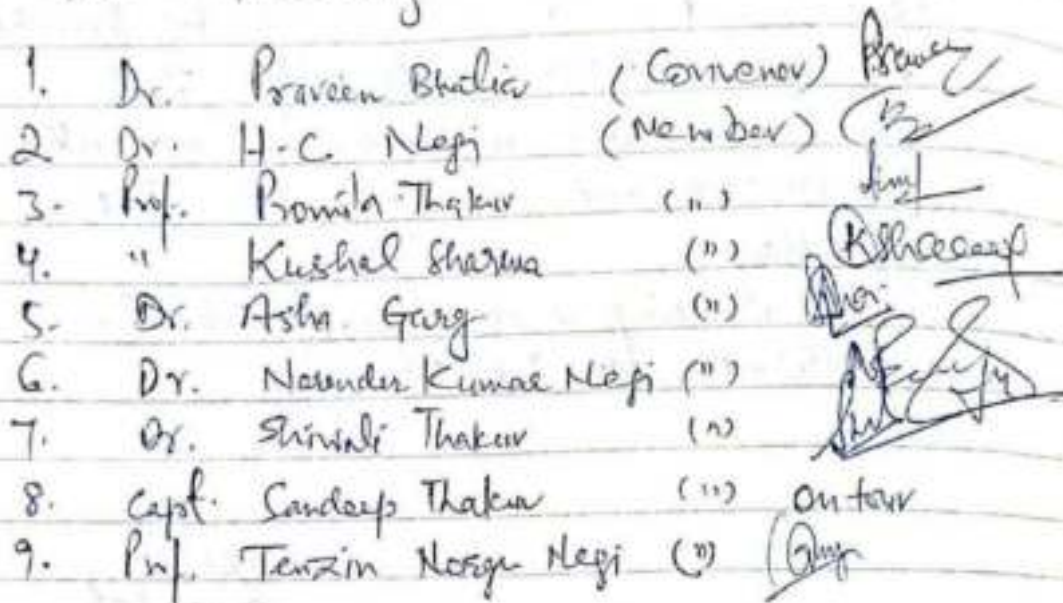 1. Dr. Praveen Bhatia (Convenor)
2 Dr. H.C. Negi (Member)
3. Prof. Promila Thakur (")
4. " Kushal Sharma (")
5. Dr. Asha Garg (")
6. Dr. Narender Kumar Negi (")
7. Dr. Shivali Thakur (")
8. Capt. Sandeep Thakur (") On tour
9. Prof. Tenzin Norgu Negi (")